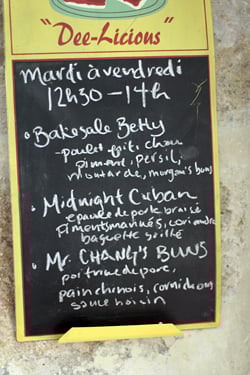 "Dee-Licious"
Mardi à vendredi
12h30 - 14h
• Bakesale Betty
- poulet frit, chou
piment, persil,
moutarde, morgan's buns
• Midnight Cuban
épaule de porc braisé
piments marinés, coriandre
baguette grillé
• Mr. CHANG'S BUNS
poitrine de porc,
pain chinois, cornichons
sauce hoisin